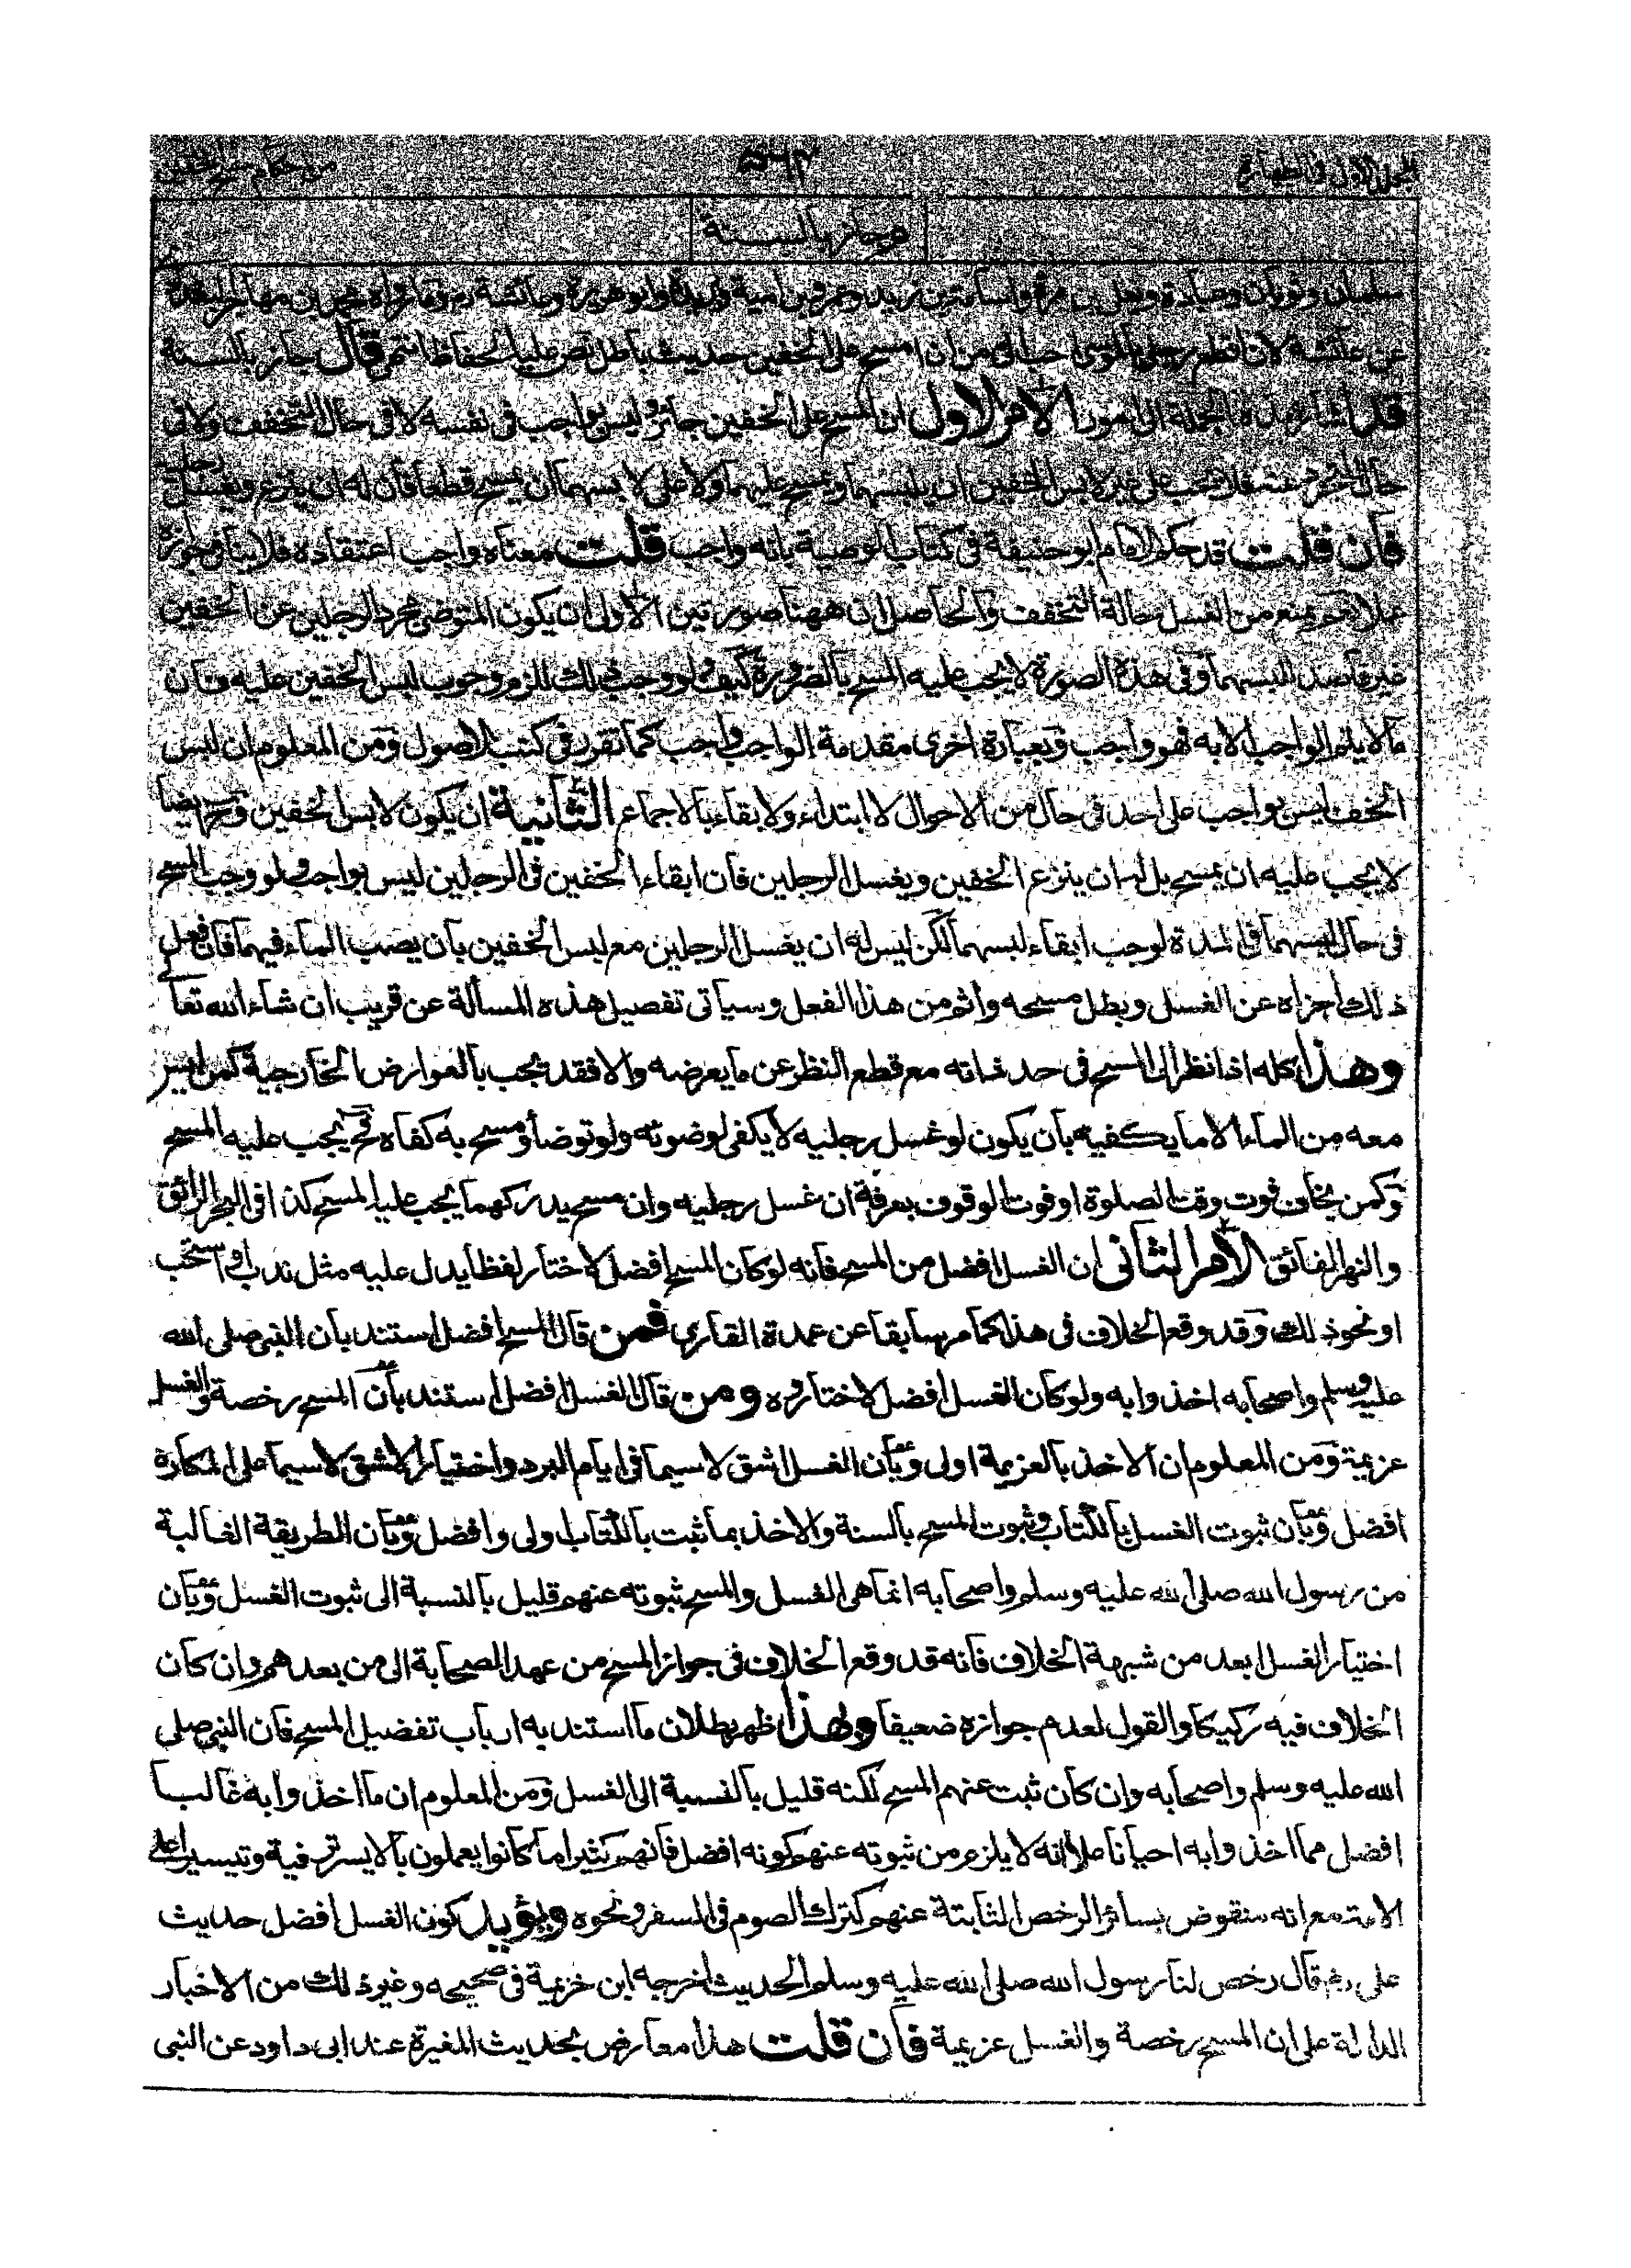 المجلد الاول في الطهارة
٥٦٣
من احكام مسح الخفين
هو جائز بالسنة
سلمان وثوبان وعبادة ويعلى بن مرة واسامة بن زيد وعمرو بن امية وبريدة وابو هريرة وعائشة رض وما رواه محمد بن مهاجر البغدادي
عن عائشة لان اقطع رجلي بالموسى احب الي من ان امسح على الخفين حديث باطل نص عليه الحفاظ انتهى قال جائز بالسنة
قلت اشار بهذه الجملة الى امور الامر الاول ان المسح على الخفين جائز وليس بواجب في نفسه لا في حال التخفف ولا في
حال فلا يجب على غير لابس الخفين ان يلبسهما ويمسح عليهما ولا على لابسهما ان يمسح قطعا فان له ان ينزع ويغسل رجليه
فان قلت قد حكم الامام ابو حنيفة في كتاب الوصية بانه واجب قلت معناه واجب اعتقاده فلا ينافي جوازه
عملا نعم يمنع من الغسل حالة التخفف والحاصل ان ههنا صورتين الاولى ان يكون المتوضئ مجرد الرجلين عن الخفين
غير قاصد للبسهما وفي هذه الصورة لا يجب عليه المسح بالضرورة كيف ولو وجب ذلك للزم وجوب لبس الخفين عليه فان
ما لا يتم الواجب الا به فهو واجب وبعبارة اخرى مقدمة الواجب واجب كما تقرر في كتب الاصول ومن المعلوم ان لبس
الخف ليس بواجب على احد في حال من الاحوال لا ابتداء ولا بقاء بالاجماع الثانية ان يكون لابس الخفين وح ايضا
لا يجب عليه ان يمسح بل له ان ينزع الخفين ويغسل الرجلين فان ابقاء الخفين في الرجلين ليس بواجب ولو وجب المسح
في حال لبسهما في المدة لوجب ابقاء لبسهما لكن ليس له ان يغسل الرجلين مع لبس الخفين بان يصب الماء فيهما فان فعل
ذلك اجزاه عن الغسل وبطل مسحه واثم من هذا الفعل وسياتي تفصيل هذه المسألة عن قريب ان شاء الله تعالى
وهذا كله اذا نظر الى المسح في حد ذاته مع قطع النظر عن ما يعرضه والا فقد يجب بالعوارض الخارجية كمن ليس
معه من الماء الا ما يكفيه بان يكون لو غسل رجليه لا يكفي لوضوئه ولو توضأ ومسح به كفاه فح يجب عليه المسح
وكمن يخاف فوت وقت الصلوة او فوت الوقوف بعرفة ان غسل رجليه وان مسح يدركهما يجب عليه المسح كذا في البحر الرائق
والنهر الفائق الامر الثاني ان الغسل افضل من المسح فانه لو كان المسح افضل لاختار لفظا يدل عليه مثل ندب او استحب
او نحو ذلك وقد وقع الخلاف في هذا كما مر سابقا عن عمدة القاري فمن قال المسح افضل استند بان النبي صلى الله
عليه وسلم واصحابه اخذوا به ولو كان الغسل افضل لاختاروه ومن قال الغسل افضل استند بان المسح رخصة والغسل
عزيمة ومن المعلوم ان الاخذ بالعزيمة اولى وبان الغسل اشق لا سيما في ايام البرد واختيار الاشق لا سيما على المكاره
افضل وبان ثبوت الغسل بالكتاب وثبوت المسح بالسنة والاخذ بما ثبت بالكتاب اولى وافضل وبان الطريقة الغالبة
من رسول الله صلى الله عليه وسلم واصحابه انما هي الغسل والمسح ثبوته عنهم قليل بالنسبة الى ثبوت الغسل وبان
اختيار الغسل ابعد من شبهة الخلاف فانه قد وقع الخلاف في جواز المسح من عهد الصحابة الى من بعدهم وان كان
الخلاف فيه ركيكا والقول لعدم جوازه ضعيفا وبهذا ظهر بطلان ما استند به ارباب تفضيل المسح فان النبي صلى
الله عليه وسلم واصحابه وان كان ثبت عنهم المسح لكنه قليل بالنسبة الى الغسل ومن المعلوم ان ما اخذوا به غالبا
افضل مما اخذوا به احيانا على انه لا يلزم من ثبوته عنهم كونه افضل فانهم كثيرا ما كانوا يعملون بالايسر ترفية وتيسيرا على
الامة مع انه منقوض بسائر الرخص الثابتة عنهم كترك الصوم في السفر ونحوه ويؤيد كون الغسل افضل حديث
على رض قال رخص لنا رسول الله صلى الله عليه وسلم الحديث اخرجه ابن خزيمة في صحيحه وغير ذلك من الاخبار
الدالة على ان المسح رخصة والغسل عزيمة فان قلت هذا معارض بحديث المغيرة عند ابي داود عن النبي